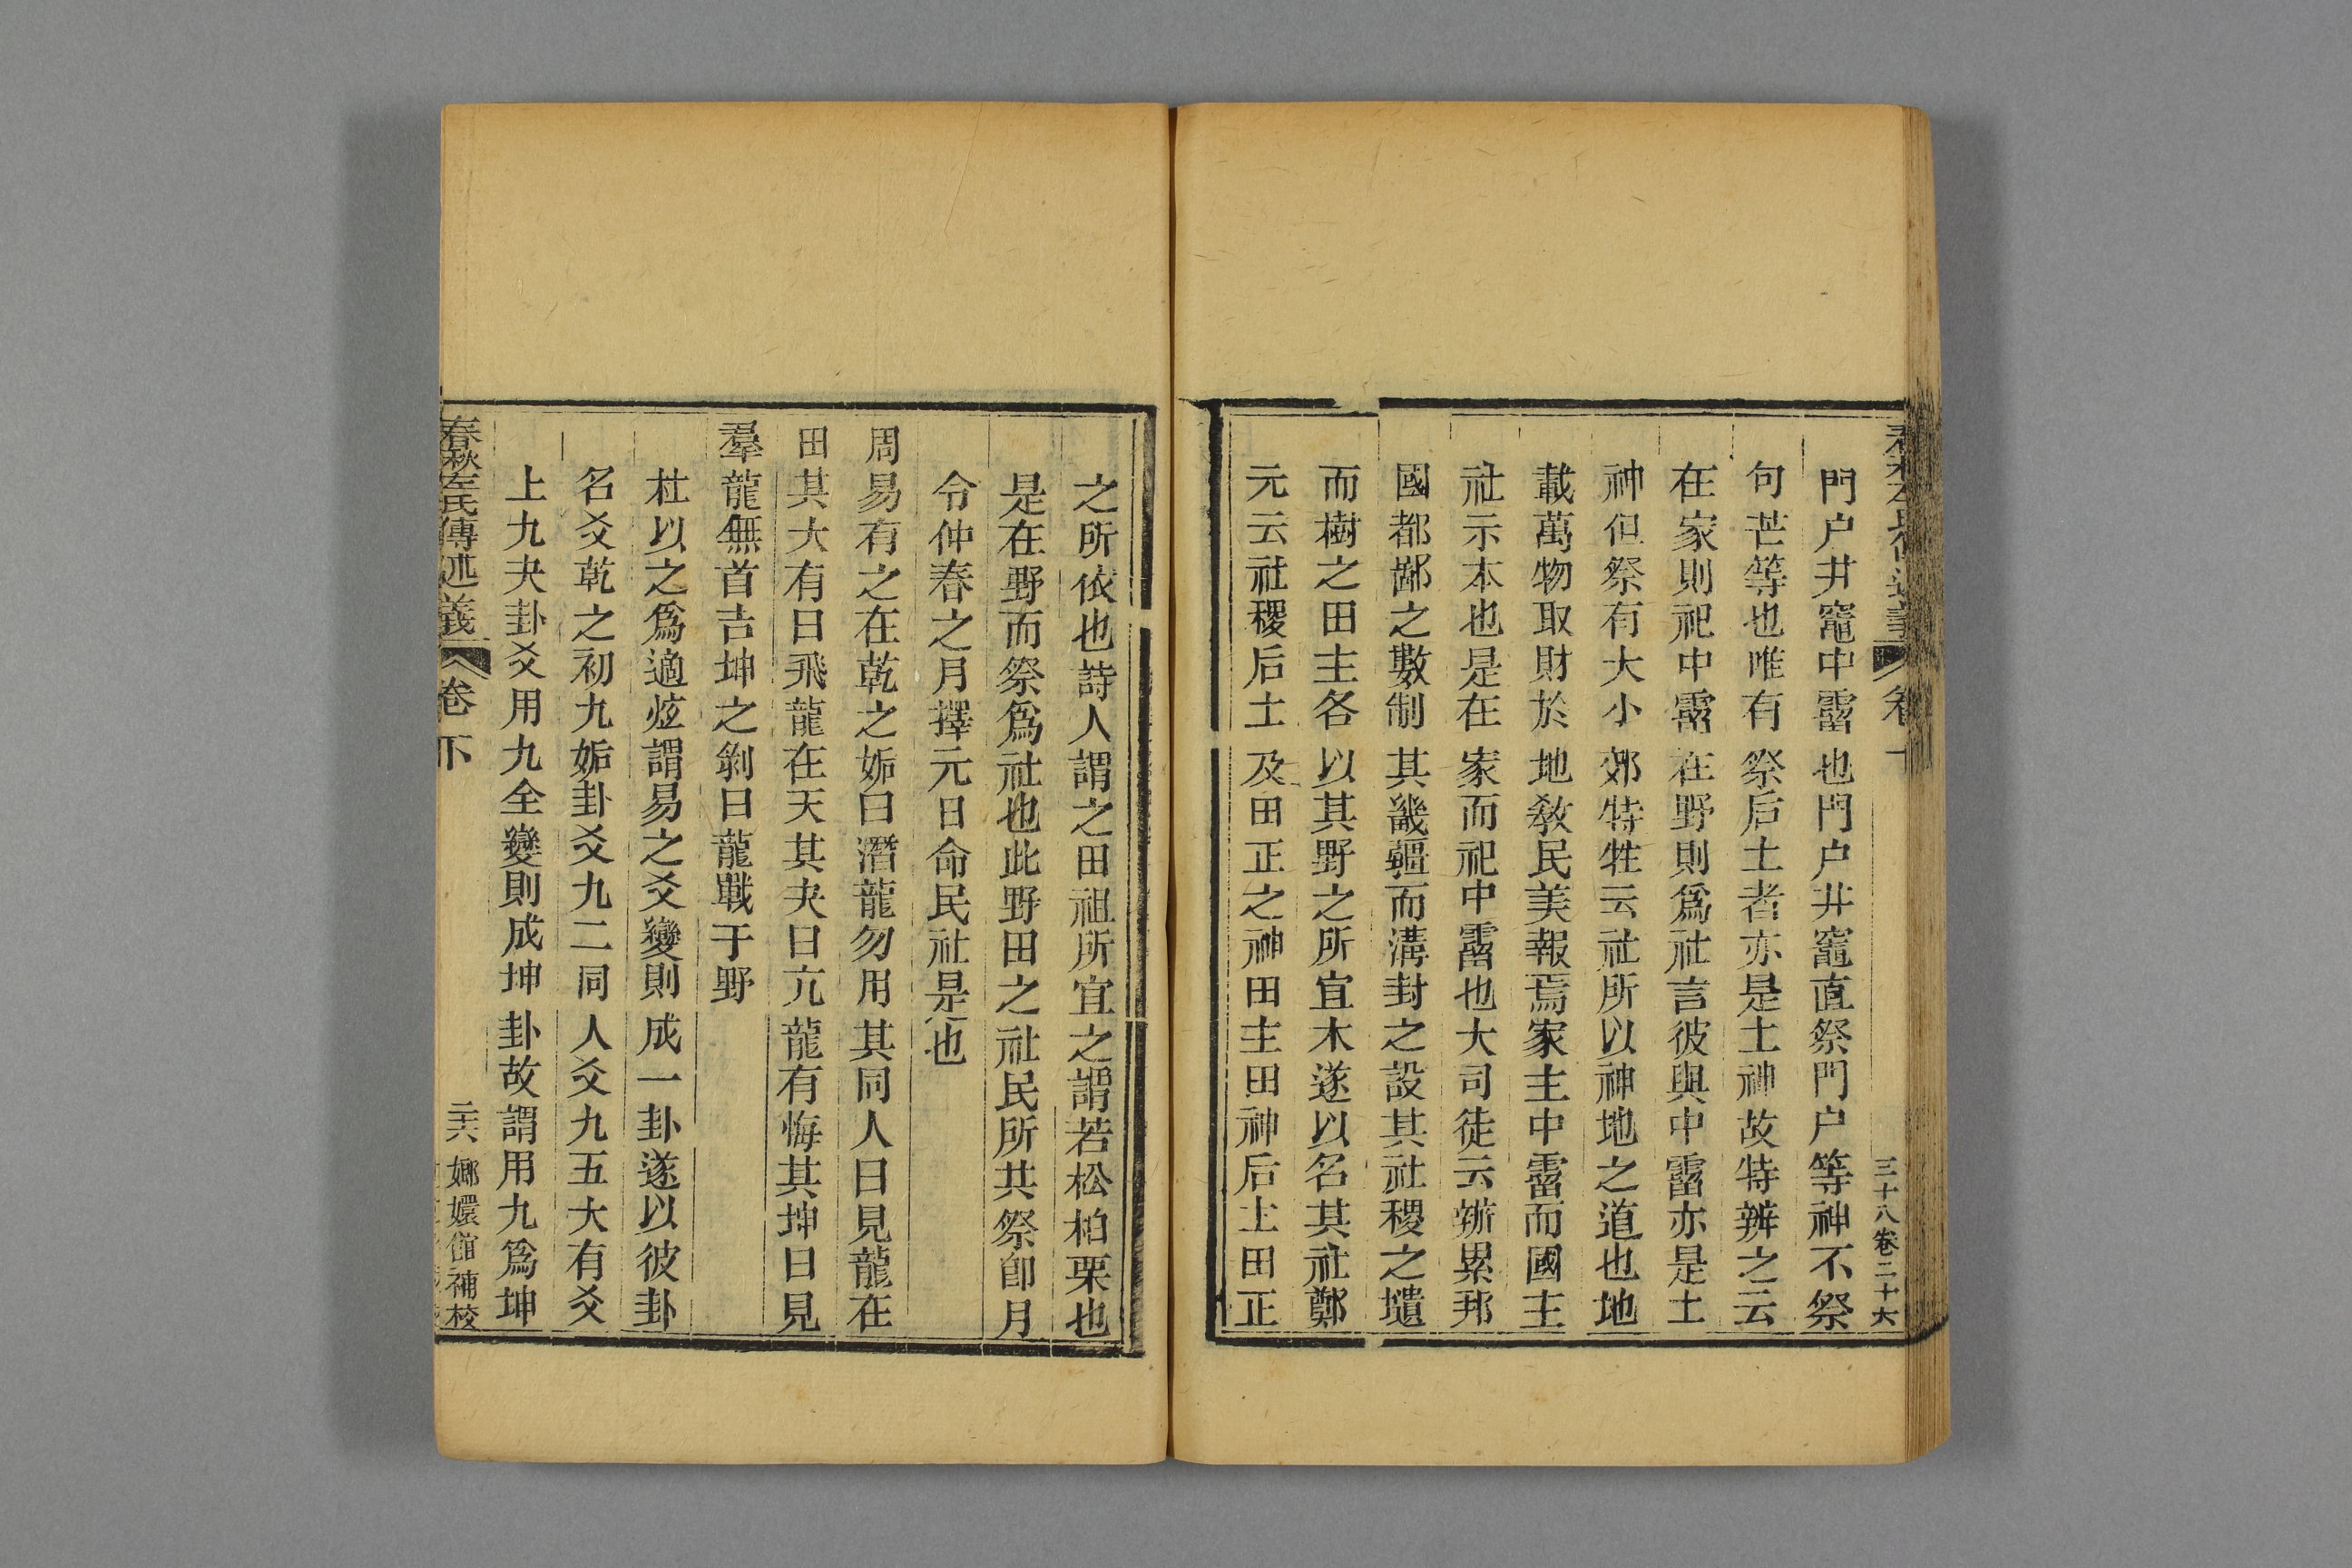 三十八卷二十六
門户井竈中霤也門户井竈直祭門户等神不祭
句芒等也唯有祭后土者亦是土神故特辨之云
在家則祀中霤在野則爲社言彼與中霤亦是土
神但祭有大小郊特牲云社所以神地之道也地
載萬物取財於地敎民美報焉家主中霤而國主
社示本也是在家而祀中霤也大司徒云辨累邦
國都鄙之數制其畿疆而溝封之設其社稷之壝
而樹之田主各以其野之所宜木遂以名其社鄭
元云社稷后土及田正之神田主田神后土田正
之所依也詩人謂之田祖所宜之謂若松柏栗也
是在野而祭爲社也此野田之社民所共祭卽月
令仲春之月擇元日命民社是也
周易有之在乾之姤曰潛龍勿用其同人曰見龍在
田其大有曰飛龍在天其夬曰亢龍有悔其坤曰見
羣龍無首吉坤之剝曰龍戰于野
杜以之爲適炫謂易之爻變則成一卦遂以彼卦
名爻乾之初九姤卦爻九二同人爻九五大有爻
上九夬卦爻用九全變則成坤卦故謂用九爲坤
春秋左氏傳述義 卷下 二六 嫏嬛館補校